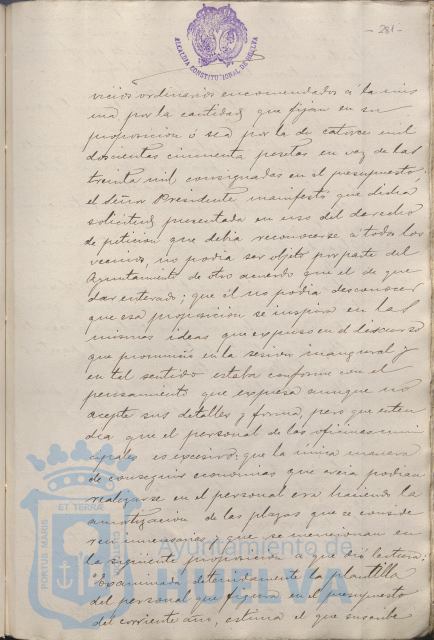 - 281 -
ALCALDIA CONSTITUCIONAL DE HUELVA
vicios ordinarios encomendados á la mis
ma, por la cantidad que fijan en su
proposicion ó sea por la de catorce mil
doscientas cincuenta pesetas en vez de las
treinta mil consignadas en el presupuesto;
el Señor Presidente manifestó que dicha
solicitud presentada en uso del derecho
de peticion que debia reconocerse á todos los
vecinos, no podia ser objeto por parte del
Ayuntamiento de otro acuerdo que el de que
dar enterado; que él no podia desconocer
que esa proposicion se inspira en las
mismas ideas que expuso en el discurso
que pronunció en la sesion inaugural y
en tal sentido estaba conforme con el
pensamiento que expresa aunque no
acepte sus detalles y forma, pero que enten
dia que el personal de las oficinas muni
cipales es excesivo; que la única manera
de conseguir economias que creia podian
realizarse en el personal era haciendo la
amortizacion de las plazas que se conside
ren innecesarias y que se mencionan en
la siguiente proposicion a que dió lectura:
"Examinada detenidamente la plantilla
del personal que figura en el presupuesto
del corriente año, estima el que suscribe
PORTUS MARIS ET TERRÆ
Ayuntamiento de
HUELVA